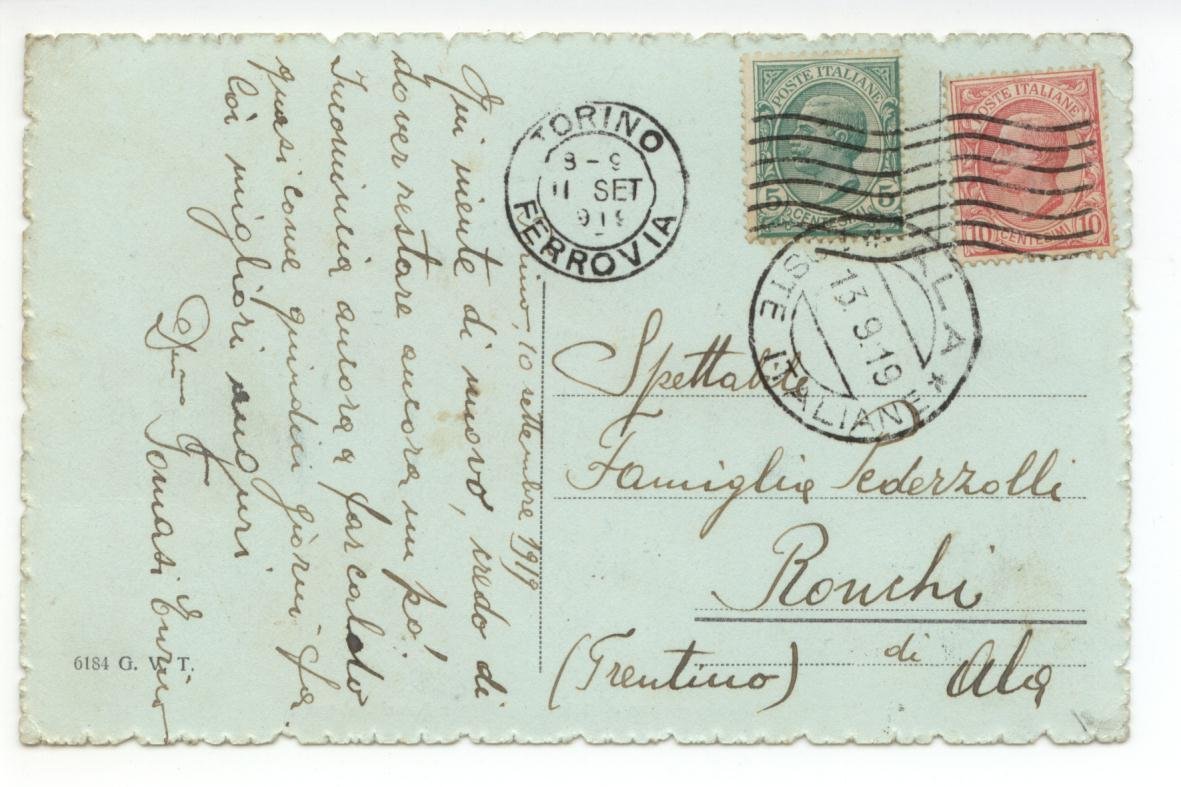 Torino, 10 settembre 1919
Qui niente di nuovo, credo di
dover restare ancora un po'.
Incomincia ancora a far caldo
quasi come quindici giorni fa.
Coi migliori auguri
Tomasi Enrico
6184 G. V. T.
TORINO
8-9
11 SET
1919
FERROVIA
POSTE ITALIANE
5 CENTESIMI 5
POSTE ITALIANE
10 CENTESIMI 10
ALA
13.9.19
POSTE ITALIANE
Spettabile
Famiglia Pederzolli
Ronchi
di Ala
(Trentino)